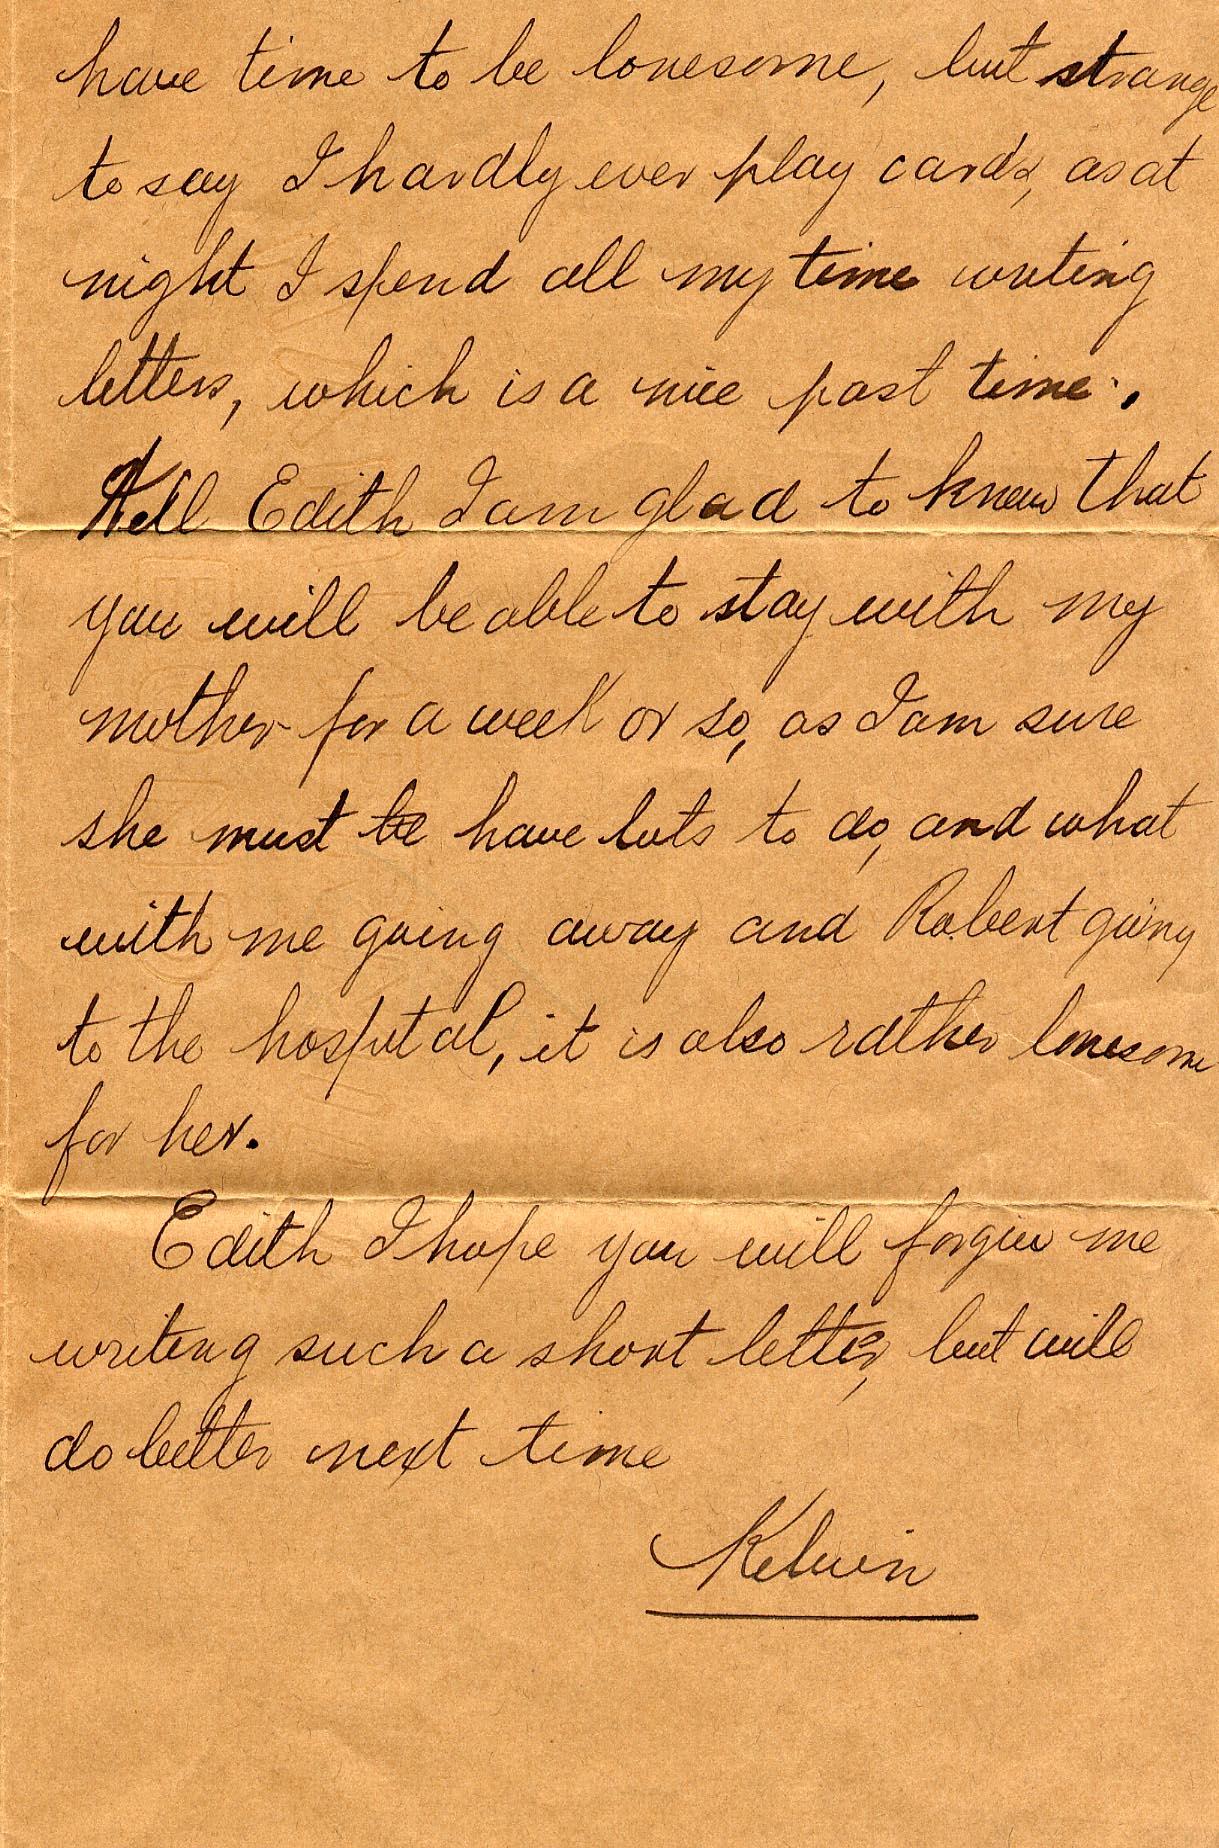 have time to be lonesome, but strange
to say I hardly ever play cards, as at
night I spend all my time writing
letters, which is a nice past time.
Well Edith I am glad to know that
you will be able to stay with my
mother for a week or so, as I am sure
she must be have lots to do, and what
with me going away and Robert going
to the hospital, it is also rather lonesome
for her.
Edith I hope you will forgive me
writing such a short letter, but will
do better next time
Kelvin